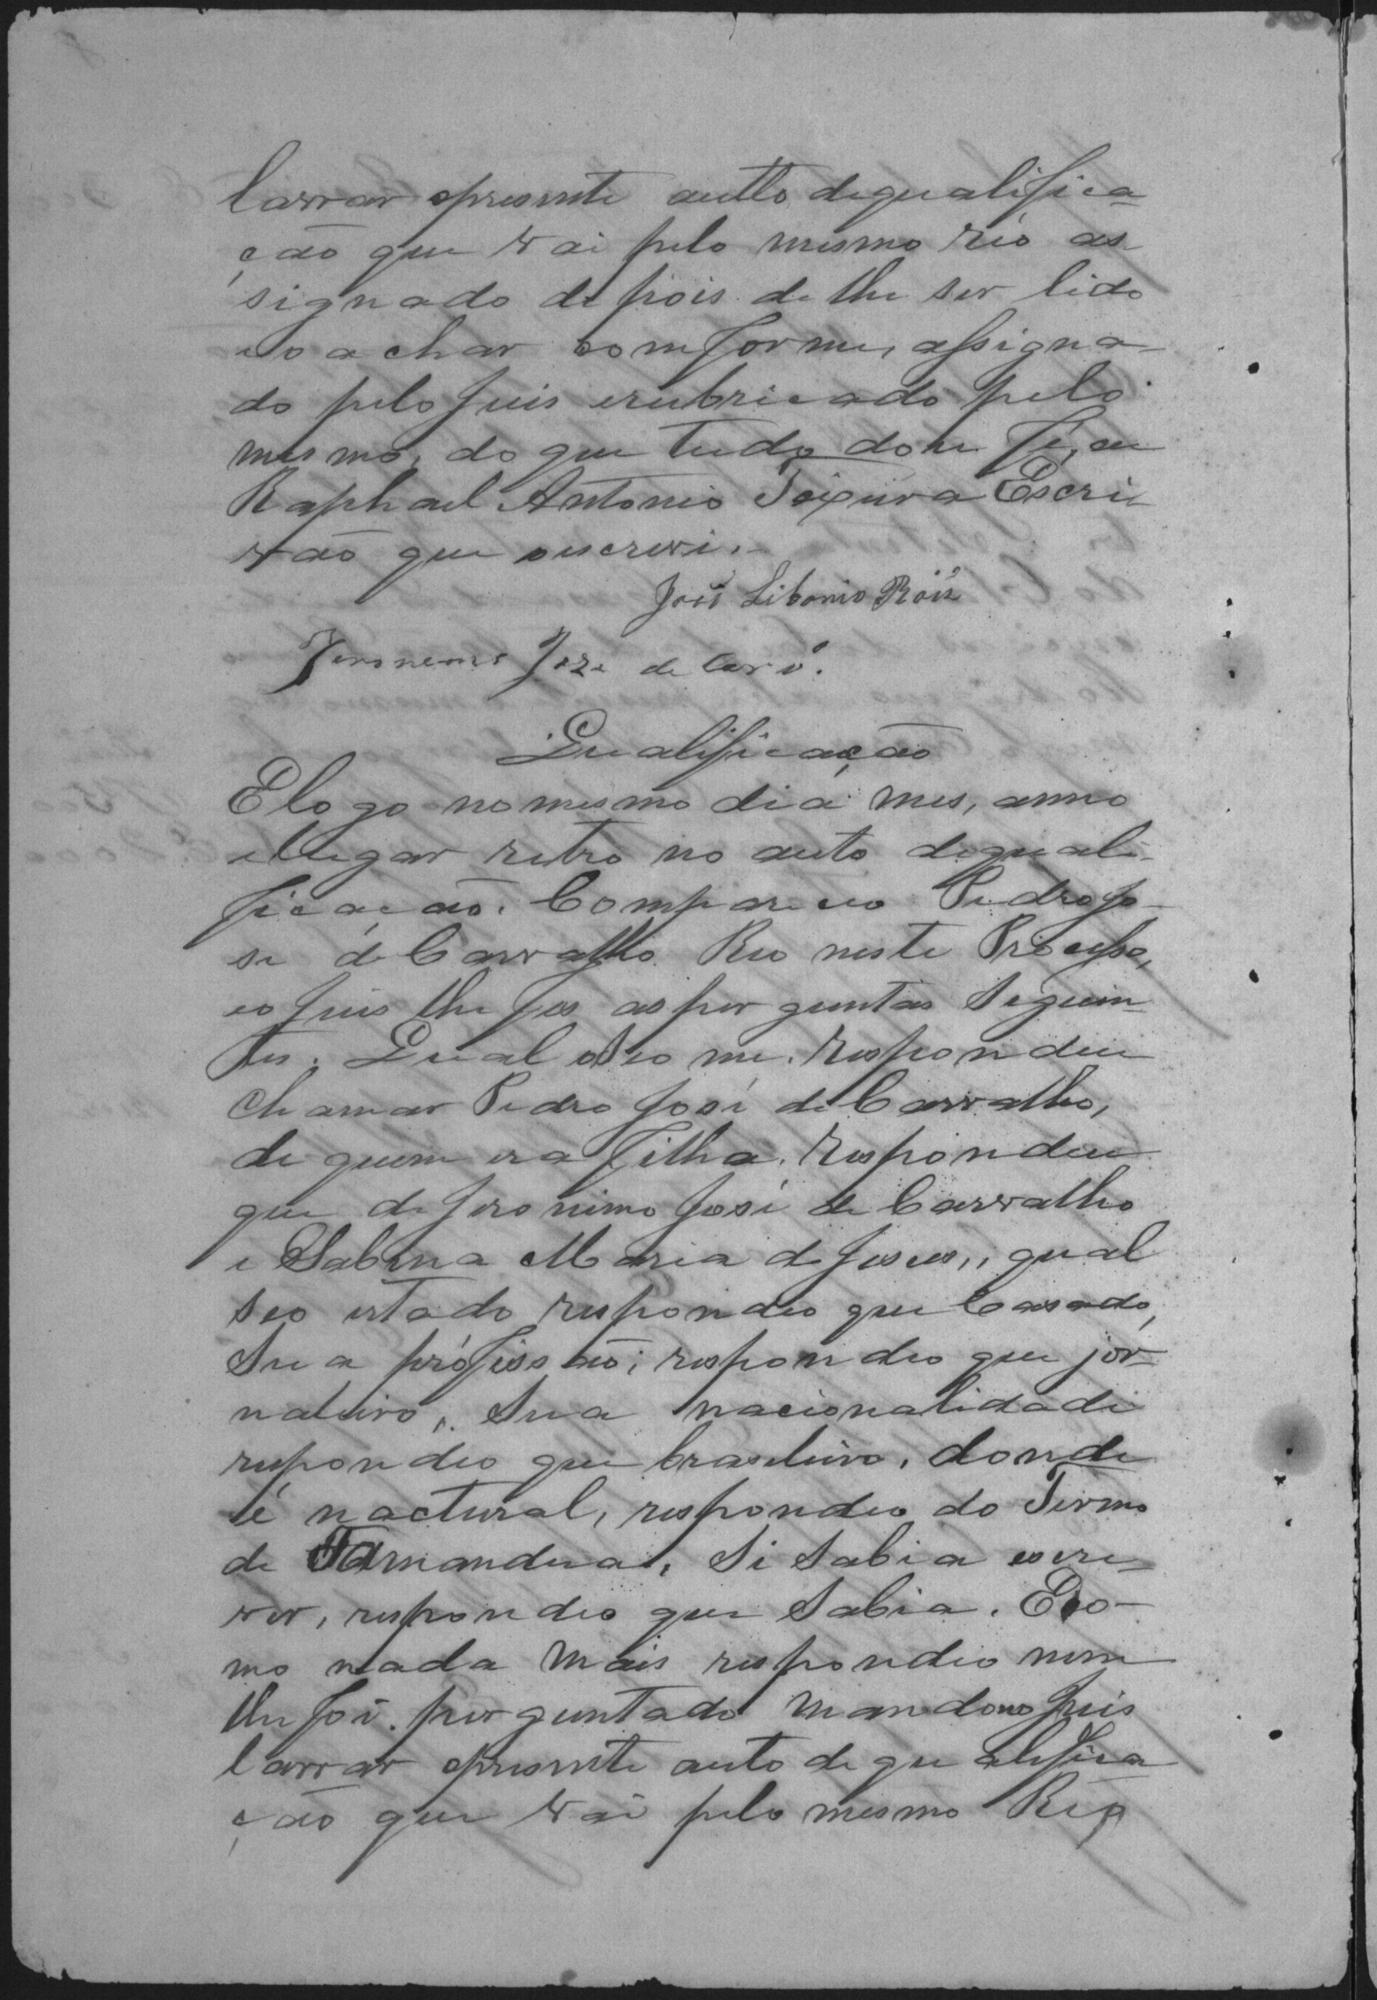 larrar opresente autto dequalifica-
ção que vai pelo mesmo réo as-
signado depois de lhe ser lido
eo achar comforme, assigna-
do pelo Juis erubricado pelo
mesmo, do que tudo dou fé, eu
Raphael Antonio Teixeira Escri-
vão que escrevi.
José Libonio Róiz
Jeronemo Joze de Carv.º
Qualificação
E logo nomesmo dia mes, anno
elugar retro no auto dequali-
ficação. Compareceo Pedro Jo-
se de Carvalho Reo neste Processo,
eo Juis lhe fes as perguntas Seguin-
tes. Qual o Seo me. Respondeu
chamar Pedro José de Carvalho,
de quem era Filho. Respondeu
que de Jeronimo José de Carvalho
e Sabina Maria de Jesus, qual
seo estado respondeo que Casado,
Sua profissão; respondeo que jor-
naleiro, Sua nacionalidade
respondeo que brasileiro, donde
é nactural, respondeo do Termo
de Jamandua, Si Sabia escre-
ver, respondeo que Sabia. E co-
mo nada mais respondeo nem
lhe foi perguntado mandou o Juis
larrar opresente auto de qualifica
ção que vai pelo mesmo Réo